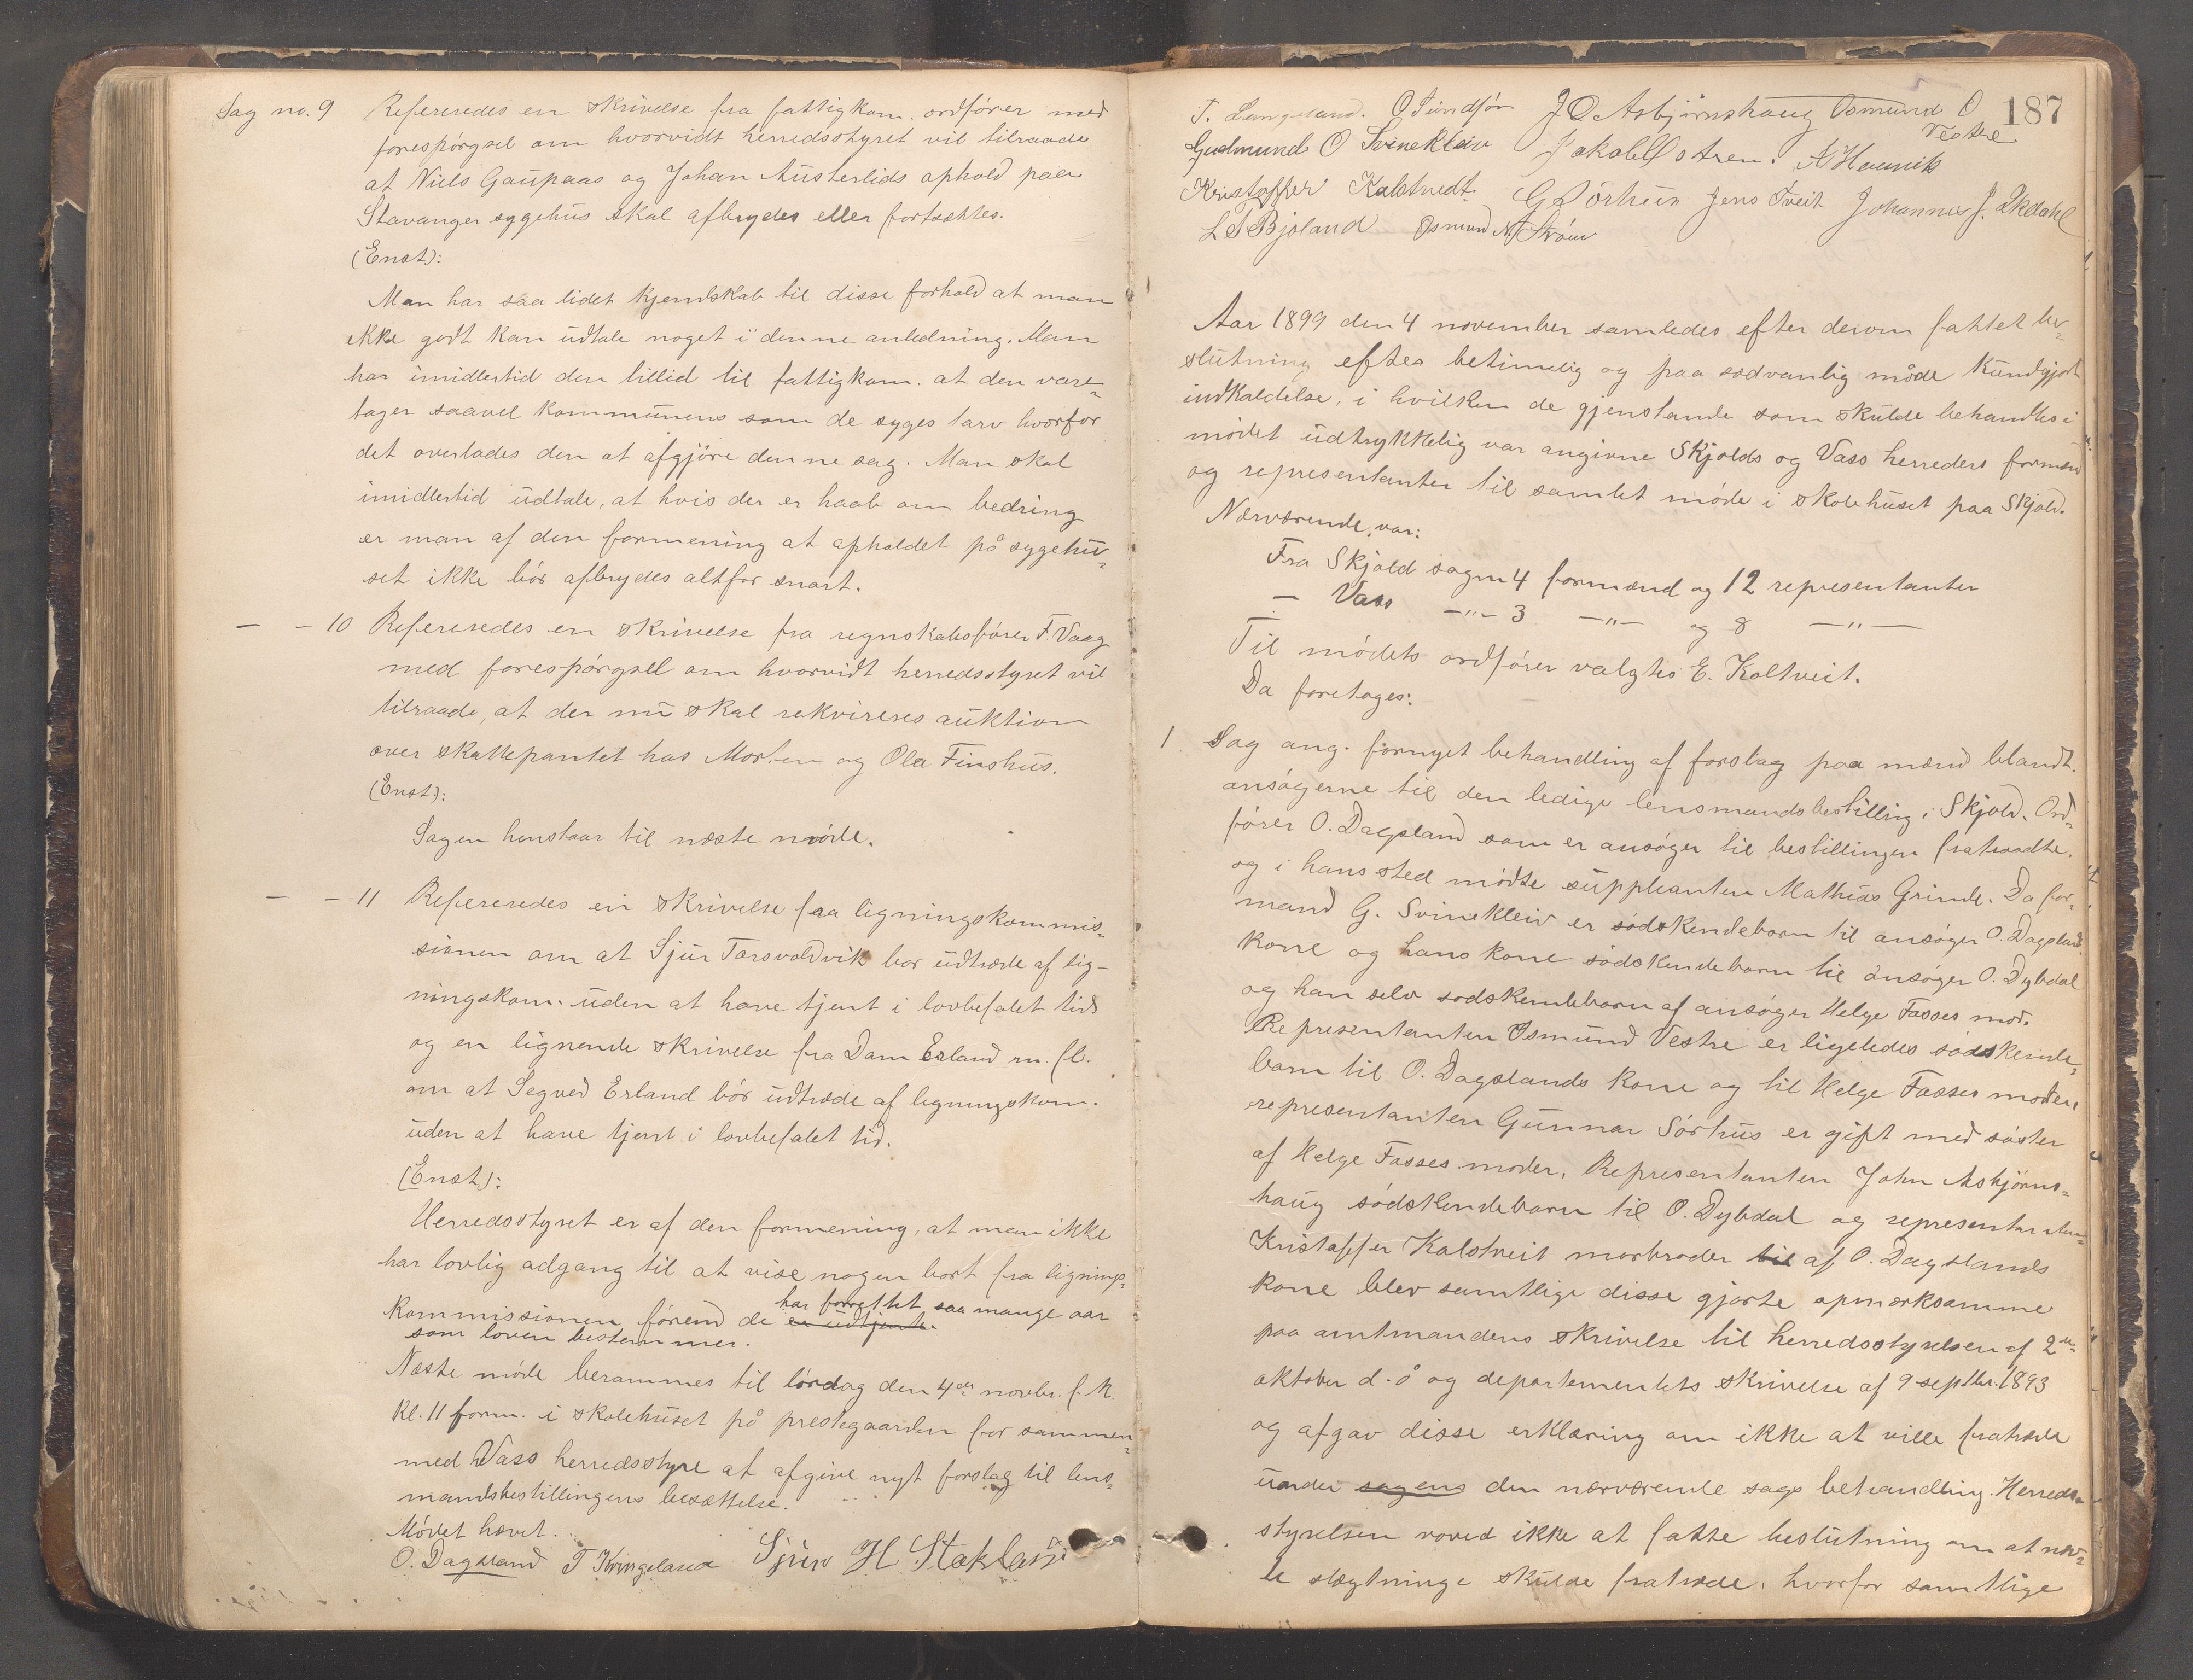 Sag no. 9 Refereredes en skrivelse fra fattigkom. ordfører med
forespørgsel om hvorvidt herredsstyret vil tilraade
at Niels Gaupaas og Johan Austerlids ophold paa
Stavanger sygehus skal afbrydes eller fortsættes.
(Enst):
Man har saa lidet kjendskab til disse forhold at man
ikke godt kan udtale noget i denne anledning. Man
har imidlertid den tillid til fattigkom. at den vare-
tager saavel kommunens som de syges tarv hvorfor
det overlades den at afgjøre denne sag. Man skal
imidlertid udtale, at hvis der er haab om bedring
er man af den formening at opholdet på sygehu-
set ikke bør afbrydes altfor snart.
— – 10 Refereredes en skrivelse fra regnskabsfører F. Vaag
med forespørgsel om hvorvidt herredsstyret vil
tilraade, at der nu skal rekvireres auktion
over skattepantet hos Morten og Ola Finshus.
(Enst):
Sagen henstaar til næste møde.
— – 11 Refereredes en skrivelse fra ligningskommis-
sionen om at Sjur Torsvoldvik bør udtræde af lig-
ningskom. uden at have tjent i lovbefalet tid
og en lignende skrivelse fra Dam Erland m. fl.
om at Segved Erland bør udtræde af ligningskom.
uden at have tjent i lovbefalet tid.
(Enst):
Herredsstyret er af den formening, at man ikke
har lovlig adgang til at vise nogen bort fra lignings-
kommissionen førend de er udtjente. har forrettet saa mange aar
som loven bestemmer.
Næste møde berammes til lørdag den 4de novbr. f. k.
kl. 11 form. i skolehuset på prestegaarden for sammen
med Vass herredsstyre at afgive nyt forslag til lens-
mandsbestillingens besættelse.
Mødet hævet.
O. Dagsland T Kringeland Sjur H Stakland
187
T. Langeland. O Sundfør J O Asbjørnshaug Osmund O
Vestre
Gudmund O Svinekleiv Jakob Østren. A Hounik
Kristoffer Kalstvedt. G Sørhus Jens Tveit Johannes J. Økdahl
L T Bjoland Osmund N Strøm
Aar 1899 den 4 november samledes efter derom fattet be-
slutning efter betimelig og paa sædvanlig måde kundgjort
indkaldelse, i hvilken de gjenstande som skulde behandles i
mødet udtrykkelig var angivne Skjolds og Vass herreders formænd
og representanter til samlet møde i skolehuset paa Skjold.
Nærværende var:
Fra Skjold sogn 4 formænd og 12 representanter
— Vass —"— 3 —"— og 8 —"—
Til mødets ordfører valgtes E. Koltveit.
Da foretages:
1 Sag ang. fornyet behandling af forslag paa mænd blandt
ansøgerne til den ledige lensmandsbestilling i Skjold. Ord-
fører O. Dagsland som er ansøger til bestillingen fratraadte.
og i hans sted mødte suppleanten Mathias Grinde. Da for-
mand G. Svinekleiv er sødskendebarn til ansøger O. Dagslands
kone og hans kone sødskendebarn til ansøger O. Dybdal
og han selv sødskendebarn af ansøger Helge Fasses mod.
Representanten Osmund Vestre er ligeledes sødskende-
barn til O. Dagslands kone og til Helge Fasses moder
representanten Gunnar Sørhus er gift med søster
af Helge Fasses moder. Representanten John Asbjørns-
haug sødskendebarn til O. Dybdal og representanten
Kristoffer Kalstveit morbroder til af O. Dagslands
kone blev samtlige disse gjorte opmærksomme
paa amtmandens skrivelse til herredsstyrelsen af 2den
oktober d. å og departementets skrivelse af 9 septbr. 1893
og afgav disse erklæring om ikke at ville fratræde
under sagens den nærværende sags behandling. Herreds-
styrelsen voved ikke at fatte beslutning om at nævn-
te slægtninge skulde fratræde, hvorfor samtlige